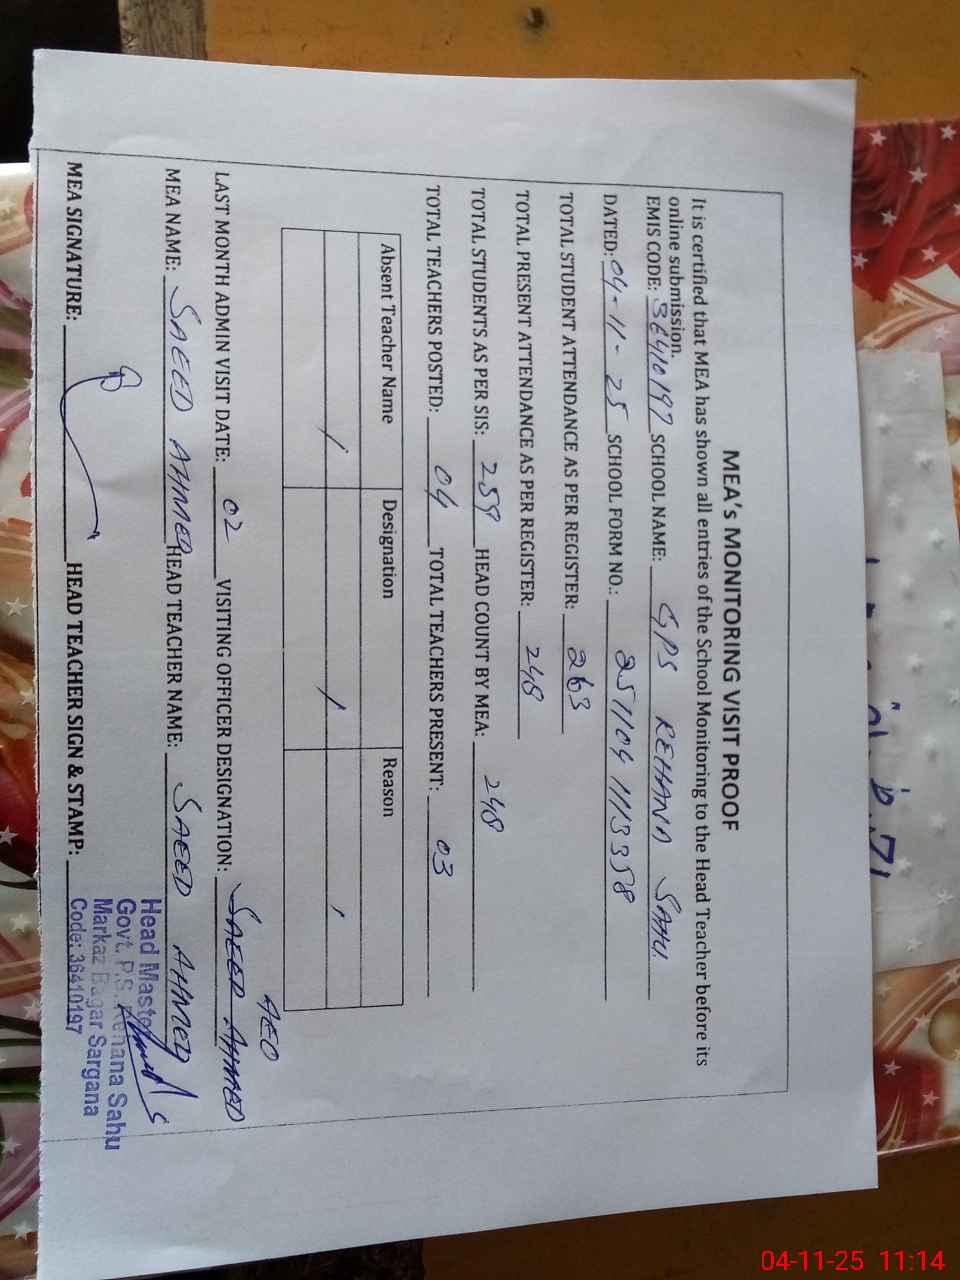 MEA's MONITORING VISIT PROOF
It is certified that MEA has shown all entries of the School Monitoring to the Head Teacher before its
online submission.
EMIS CODE: 36410197 SCHOOL NAME: GPS REHANA SAHU
DATED: 04-11-25 SCHOOL FORM NO.: 251104 1113358
TOTAL STUDENT ATTENDANCE AS PER REGISTER: 263
TOTAL PRESENT ATTENDANCE AS PER REGISTER: 248
TOTAL STUDENTS AS PER SIS: 259 HEAD COUNT BY MEA: 248
TOTAL TEACHERS POSTED: 04 TOTAL TEACHERS PRESENT: 03
Absent Teacher Name Designation Reason
AEO
LAST MONTH ADMIN VISIT DATE: 02 VISITING OFFICER DESIGNATION: SAEED AHMED
MEA NAME: SAEED AHMED HEAD TEACHER NAME: SAEED AHMED
MEA SIGNATURE: HEAD TEACHER SIGN & STAMP:
Head Master
Govt. P.S. Rehana Sahu
Markaz Bagar Sargana
Code: 36410197
04-11-25 11:14